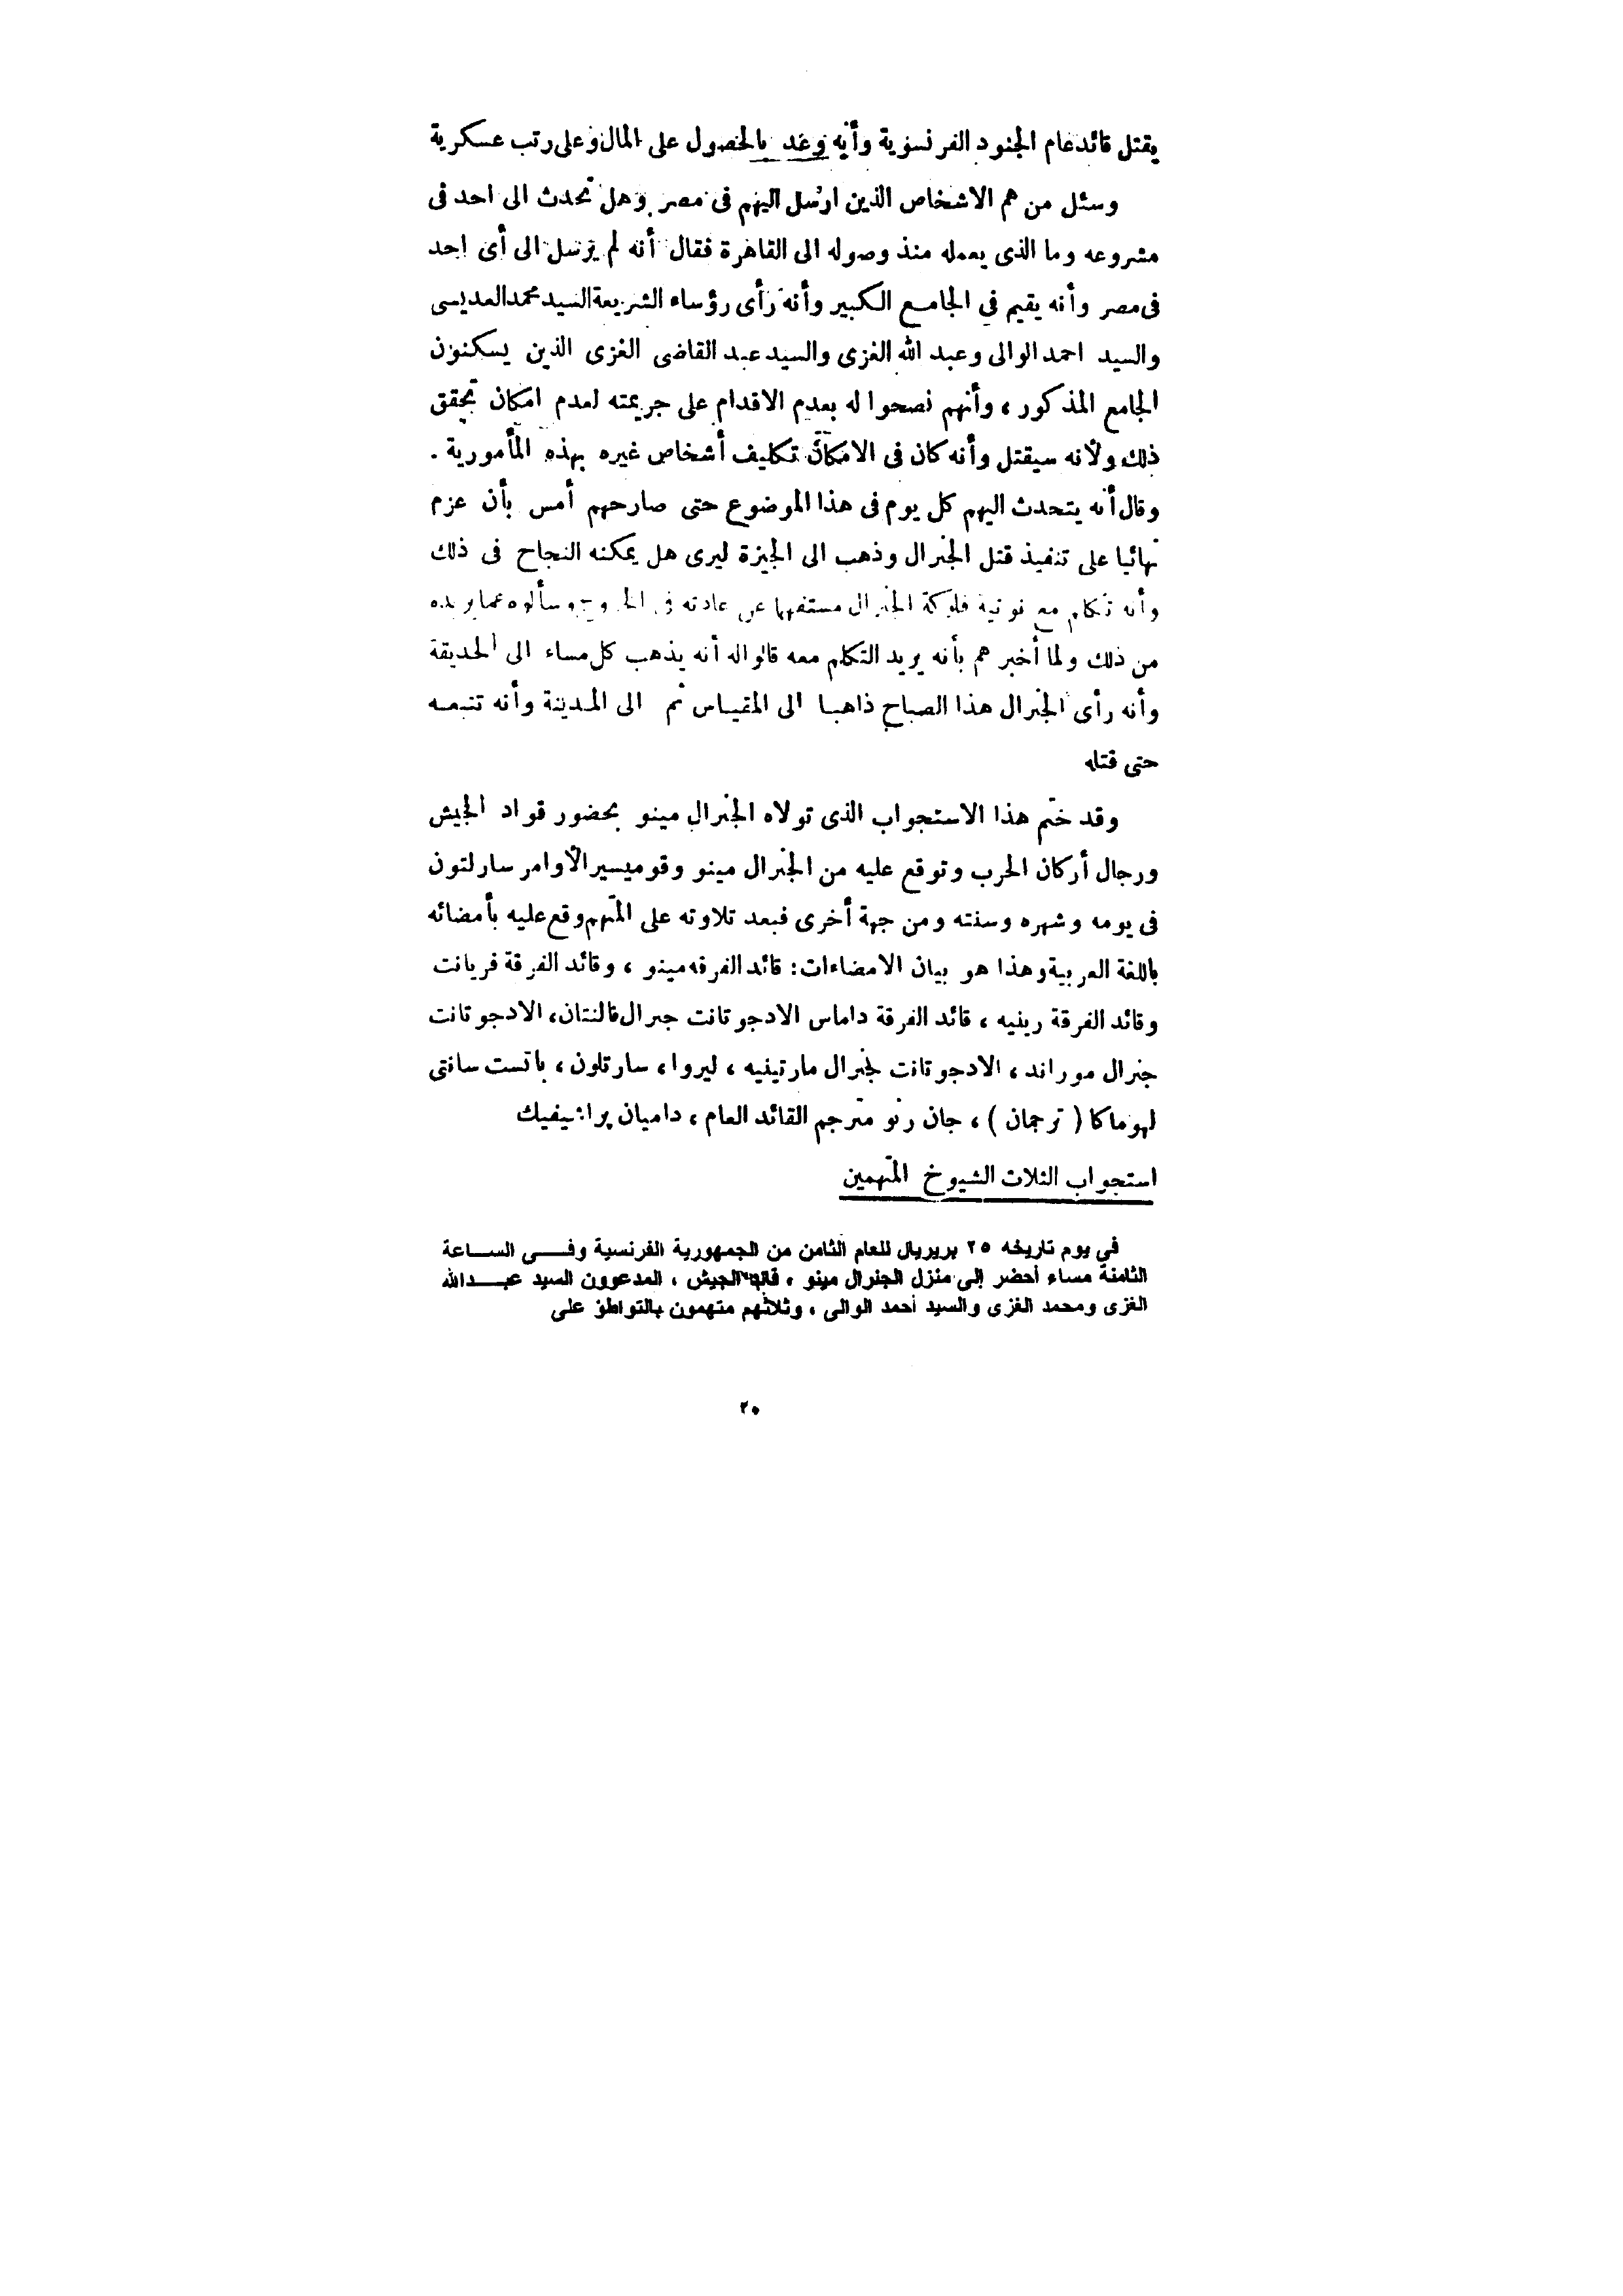 يقتل قائد عام الجنود الفرنسوية وأنه وعد بالحصول على المال وعلى رتب عسكرية
وسئل من هم الاشخاص الذين ارسل اليهم فى مصر وهل تحدث الى احد فى
مشروعه وما الذى يعمله منذ وصوله الى القاهرة فقال أنه لم يرسل الى أى احد
فى مصر وأنه يقيم في الجامع الكبير وأنه رأى رؤساء الشريعة السيد محمد العديسى
والسيد احمد الوالى وعبد الله الغزى والسيد عبد القاضى الغزى الذين يسكنون
الجامع المذكور ، وأنهم نصحوا له بعدم الاقدام على جريمته لعدم امكان تحقق
ذلك ولأنه سيقتل وأنه كان فى الامكان تكليف أشخاص غيره بهذه المأمورية .
وقال أنه يتحدث اليهم كل يوم فى هذا الموضوع حتى صارحهم أمس بأن عزم
نهائيا على تنفيذ قتل الجنرال وذهب الى الجيزة ليرى هل يمكنه النجاح فى ذلك
وأنه تكلم مع نوتية فلوكة الجنرال مستفهما عن عادته فى الخروج وسألوه عما يريده
من ذلك ولما أخبرهم بأنه يريد التكلم معه قالوا له أنه يذهب كل مساء الى الحديقة
وأنه رأى الجنرال هذا الصباح ذاهبا الى المقياس ثم الى المدينة وأنه تتبعه
حتى قتله
وقد ختم هذا الاستجواب الذى تولاه الجنرال مينو بحضور قواد الجيش
ورجال أركان الحرب وتوقع عليه من الجنرال مينو وقوميسير الأوامر سارلتون
فى يومه وشهره وسنته ومن جهة أخرى فبعد تلاوته على المتهم وقع عليه بأمضائه
باللغة العربية وهذا هو بيان الامضاءات : قائد الفرقه مينو ، وقائد الفرقة فريانت
وقائد الفرقة رينيه ، قائد الفرقة داماس الادجوتانت جنرال فالنتان، الادجوتانت
جنرال موراند ، الادجوتانت لجنرال مارتينيه ، ليروا ، سارتلون ، باتست سانتى
لهوماكا ( ترجمان ) ، جان رنو مترجم القائد العام ، داميان براشيفيك
استجواب الثلاث الشيوخ المتهمين
في يوم تاريخه ٢٥ بريريال للعام الثامن من الجمهورية الفرنسية وفــى الساعة
الثامنة مساء أحضر إلى منزل الجنرال مينو ، قائد الجيش ، المدعوون السيد عبدالله
الغزى ومحمد الغزى والسيد أحمد الوالى ، وثلاثهم متهمون بالتواطؤ على
٢٠